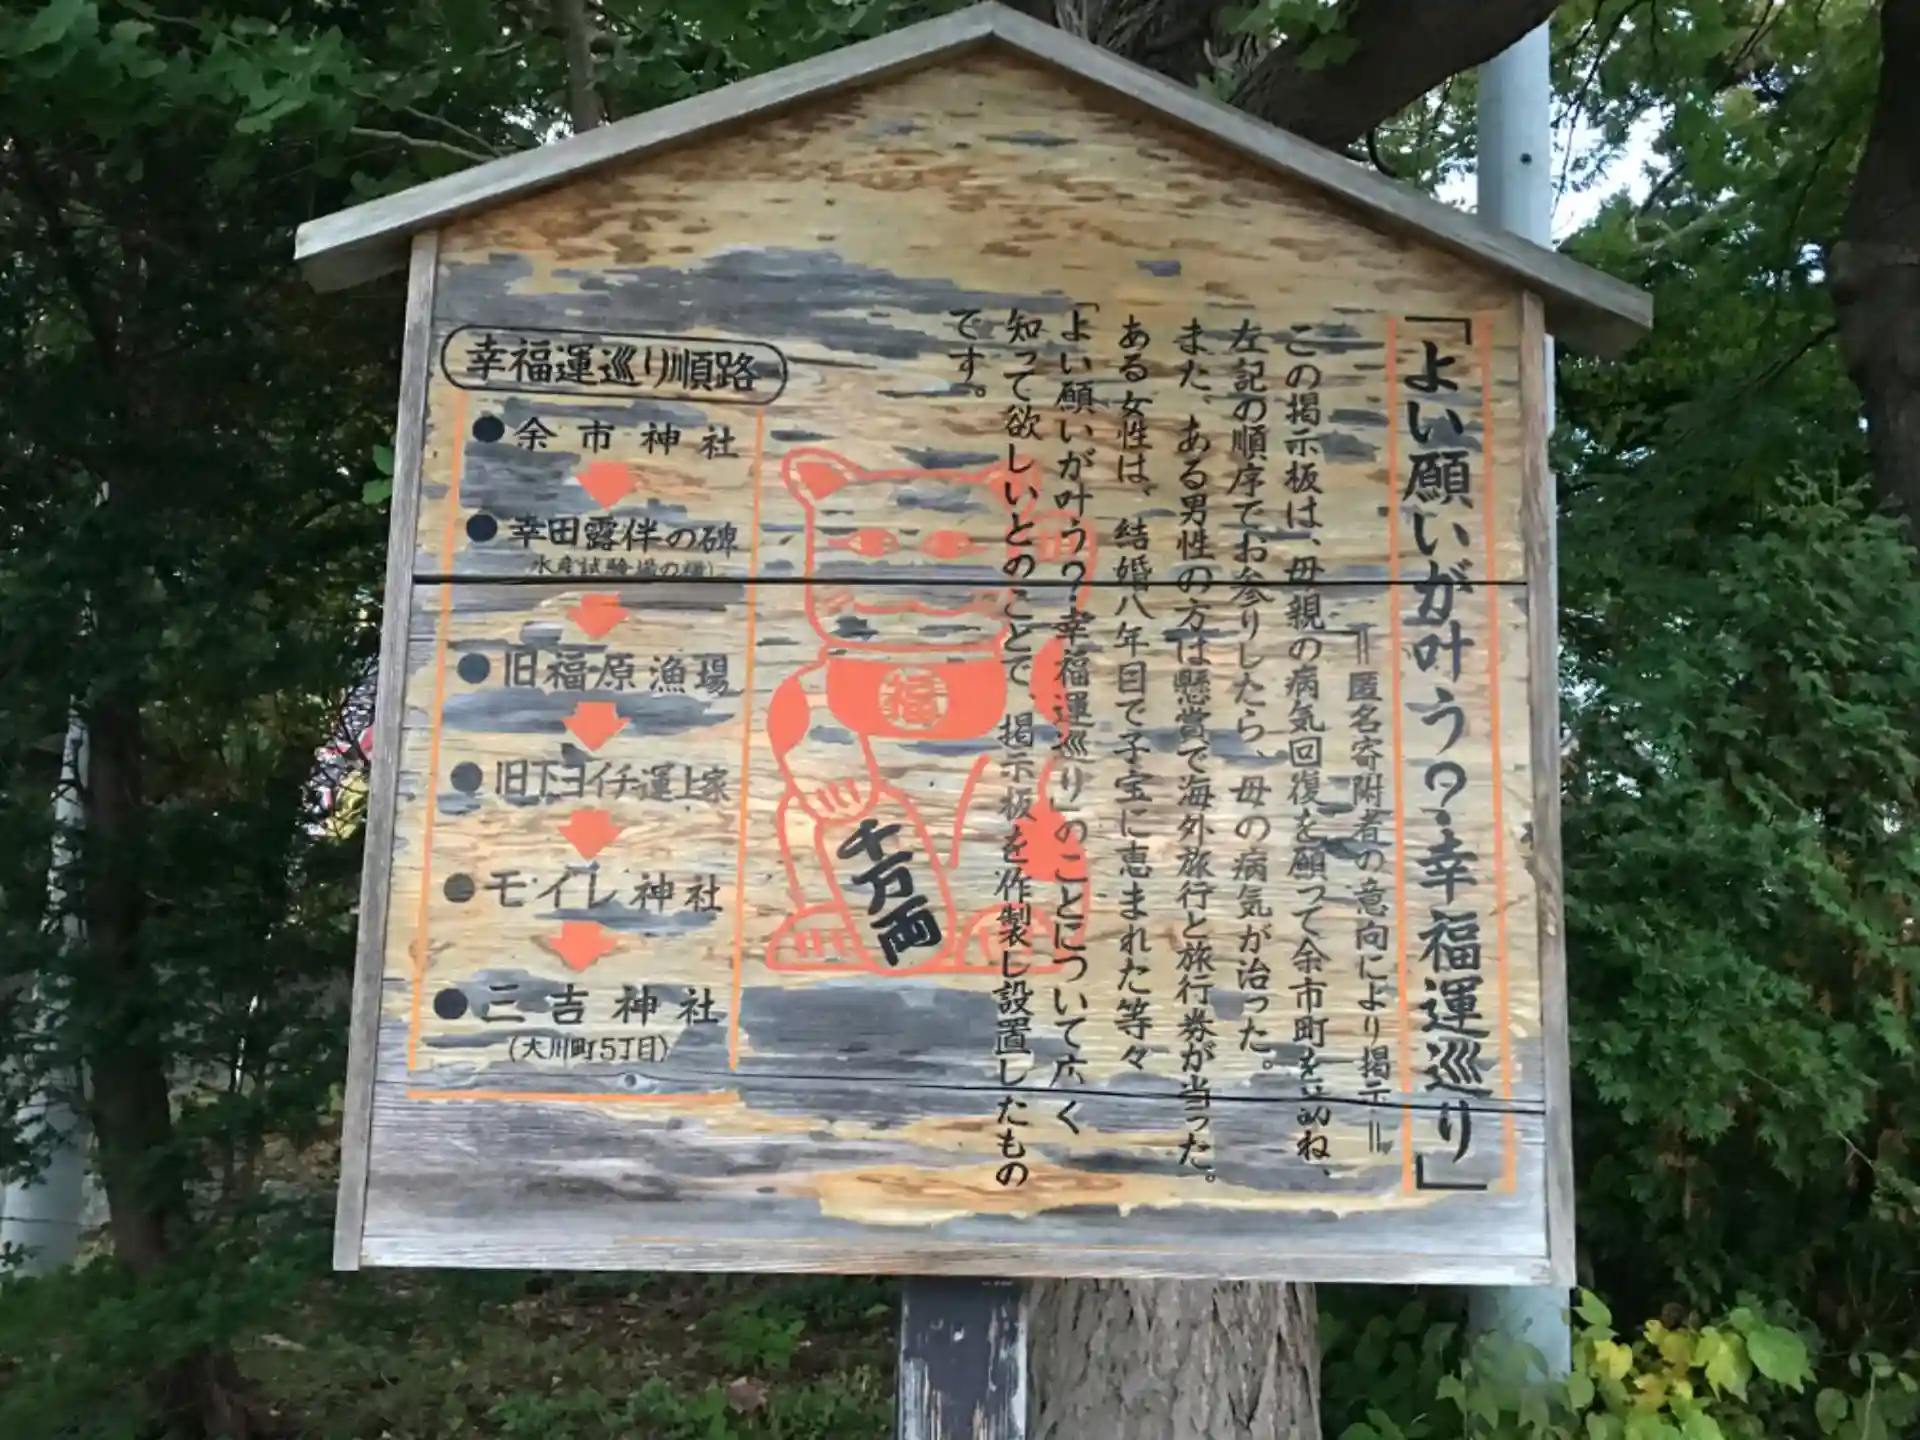 「よい願いが叶う?幸福運巡り」
=匿名寄附者の意向により掲示=
この掲示板は、母親の病気回復を願って余市町を訪ね、
左記の順序でお参りしたら、母の病気が治った。
また、ある男性の方は懸賞で海外旅行と旅行券が当った。
ある女性は、結婚八年目で子宝に恵まれた等々
「よい願いが叶う?幸福運巡り」のことについて広く
知って欲しいとのことで、掲示板を作製し設置したもの
です。
福
千万両
幸福運巡り順路
●余市神社
●幸田露伴の碑
水産試験場の横)
●旧福原漁場
●旧下ヨイチ運上家
●モイレ神社
●三吉神社
(大川町5丁目)